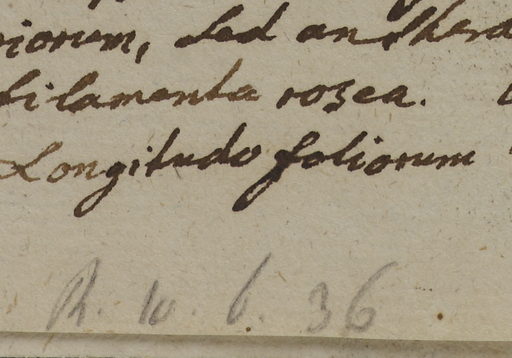 riorum, sed anthera
filamenta rosea.
Longitudo foliorum
R. w. b. 36